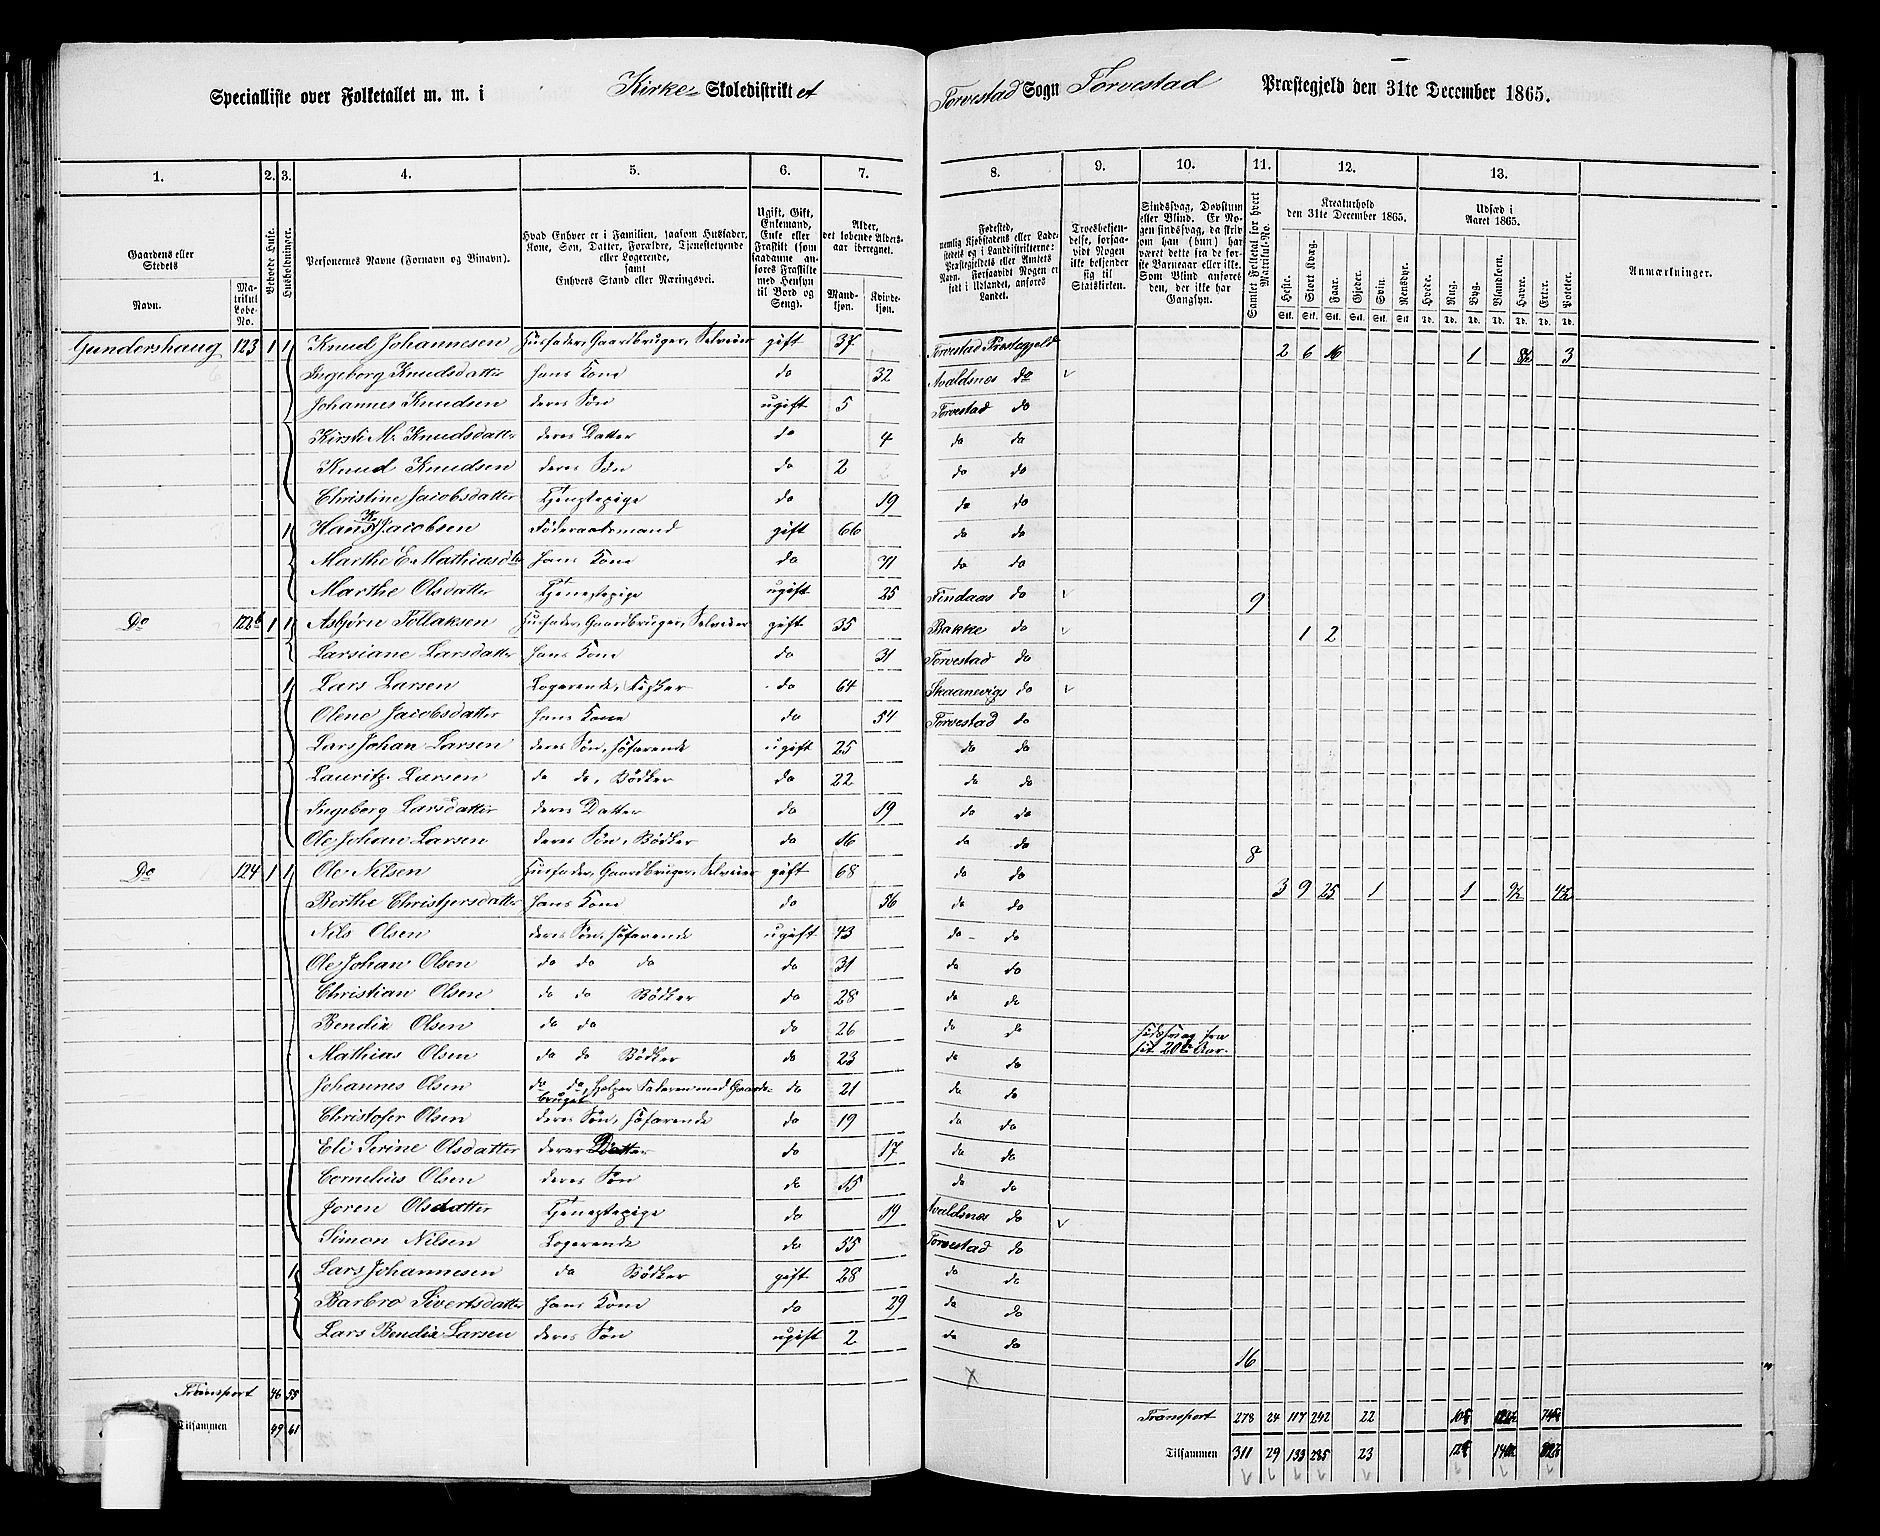 Specialliste over Folketallet m. m. i Kirke Skoledistriktet Torvestad Sogn Torvestad Præstegjeld den 31te December 1865.
1. 2. 3. 4. 5. 6. 7. 8. 9. 10. 11. 12. 13.
Gaardens eller Stedets
Navn.
Matrikul Løbe-No.
Beboede Huse.
Husholdninger.
Personernes Navne (Fornavn og Binavn).
Hvad Enhver er i Familien, saasom Husfader, Kone, Søn, Datter, Forældre, Tjenestetyende eller Logerende, samt Enhvers Stand eller Næringsvei.
Ugift, Gift, Enkemand, Enke eller Fraskilt (som saadanne anføres Fraskilte med Hensyn til Bord og Seng).
Alder, det løbende Aldersaar iberegnet.
Mandkjøn. Kvindekjøn.
Fødested, nemlig Kjøbstadens eller Ladestedets og i Landdistrikterne: Præstegjeldets eller Amtets Navn. Forsaavidt Nogen er født i Udlandet, anføres Landet.
Troesbekjendelse, forsaavidt Nogen ikke bekjender sig til Statskirken.
Sindssvag, Døvstum eller Blind. Er Nogen sindssvag, da skriv om han (hun) har været dette fra de første Barneaar eller ei. Som Blind anføres den, der ikke har Gangsyn.
Samlet Folketal for hvert Matrikul-No.
Kreaturhold den 31te December 1865.
Heste. Stort Kvæg. Faar. Gjeder. Svin. Rensdyr.
Udsæd i Aaret 1865.
Hvede. Rug. Byg. Blandkorn. Havre. Erter. Poteter.
Anmærkninger.
Gundershaug 123 1 1 Knud Johannesen Husfader, Gaardbruger, Selveier gift 37 Torvestad Præstegjeld 2 6 16 1 8½ 3
Ingeborg Knudsdatter hans Kone do 32 Avaldsnes do
Johannes Knudsen deres Søn ugift 5 Torvestad do
Kirsti M. Knudsdatter deres Datter do 4 do do
Knud Knudsen deres Søn do 2 do do
Christine Jacobsdatter Tjenestepige do 19 do do
1 Hans K. Jacobsen Føderaadsmand gift 66 do do
Marthe E. Mathiasdtr hans Kone do 71 do do
Marthe Olsdatter Tjenestepige ugift 25 Findaas do 9
Do 122b 1 1 Asbjørn Tollaksen Husfader, Gaardbruger, Selveier gift 35 Bakke do 1 2
Larsiane Larsdatter hans Kone do 31 Torvestad do
1 Lars Larsen Logerende, Fisker do 64 Skaanevigs do
Olene Jacobsdatter hans Kone do 54 Torvestad do
Lars Johan Larsen deres Søn, Søfarende ugift 25 do do
Lauritz Larsen do do, Bødker do 22 do do
Ingeborg Larsdatter deres Datter do 19 do do
Ole Johan Larsen deres Søn, Bødker do 16 do do 8
Do 124 1 1 Ole Nilsen Husfader, Gaardbruger, Selveier gift 68 do do 3 9 25 1 1 9½ 4½
Berthe Christjersdatter hans Kone do 56 do do
Nils Olsen deres Søn, Søfarende ugift 43 do do
Ole Johan Olsen do do do do 31 do do
Christian Olsen do do Bødker do 28 do do
Bendix Olsen do do do 26 do do
Mathias Olsen do do Bødker do 23 do do
Johannes Olsen do do, hjelper Faderen med Gaardsbruget do 21 do do
Christofer Olsen deres Søn, Søfarende do 19 do do
Eli Serine Olsdatter deres Datter do 17 do do
Cornelius Olsen deres Søn do 15 do do
Joren Olsdatter Tjenestepige do 19 Avaldsnes do
Simon Nilsen Logerende do 55 Torvestad do
1 Lars Johannesen do Bødker gift 28 do do
Barbro Sivertsdatter hans Kone do 29 do do
Lars Bendix Larsen deres Søn ugift 2 do do 16
Transport 46 55 Transport 278 24 117 242 22
Tilsammen 49 61 Tilsammen 311 29 133 285 23